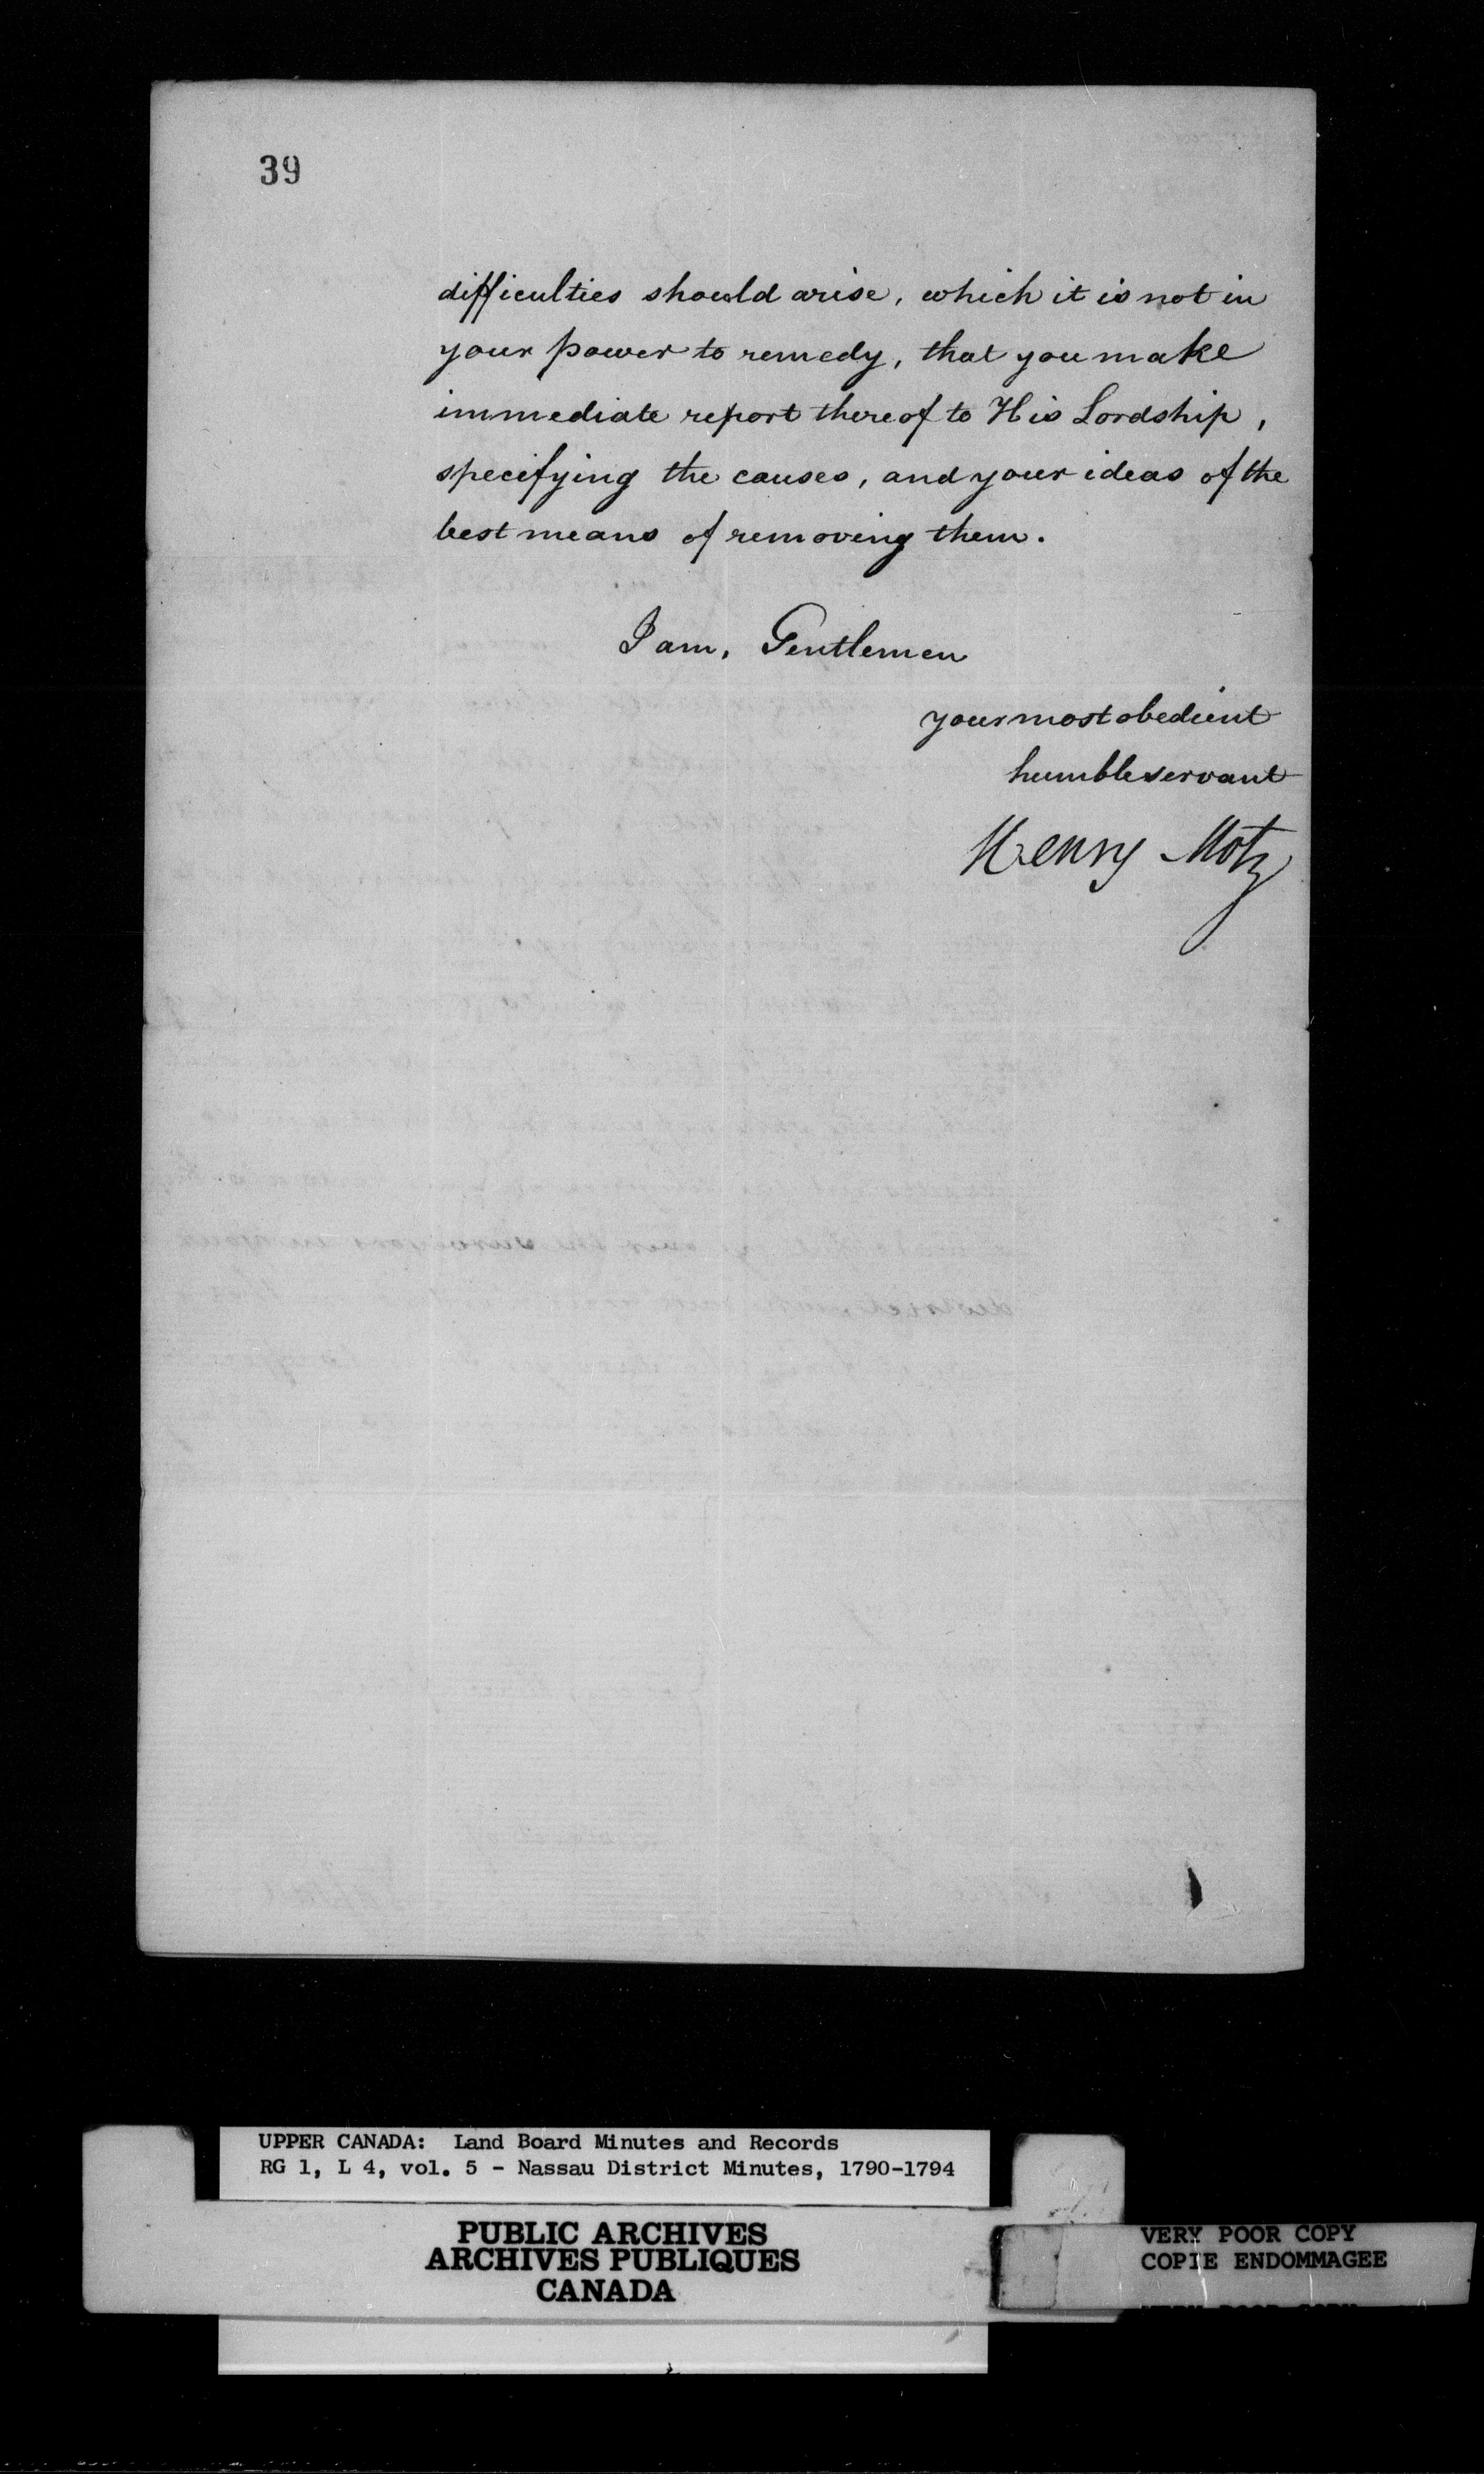 39
difficulties should arise, which it is not in
your power to remedy, that you make
immediate report thereof to His Lordship,
specifying the causes, and your ideas of the
best means of removing them.
I am, Gentlemen
your most obedient
humble servant
Henry Motz
UPPER CANADA: Land Board Minutes and Records
RG 1, L 4, vol. 5 - Nassau District Minutes, 1790-1794
PUBLIC ARCHIVES
ARCHIVES PUBLIQUES
CANADA
VERY POOR COPY
COPIE ENDOMMAGEE